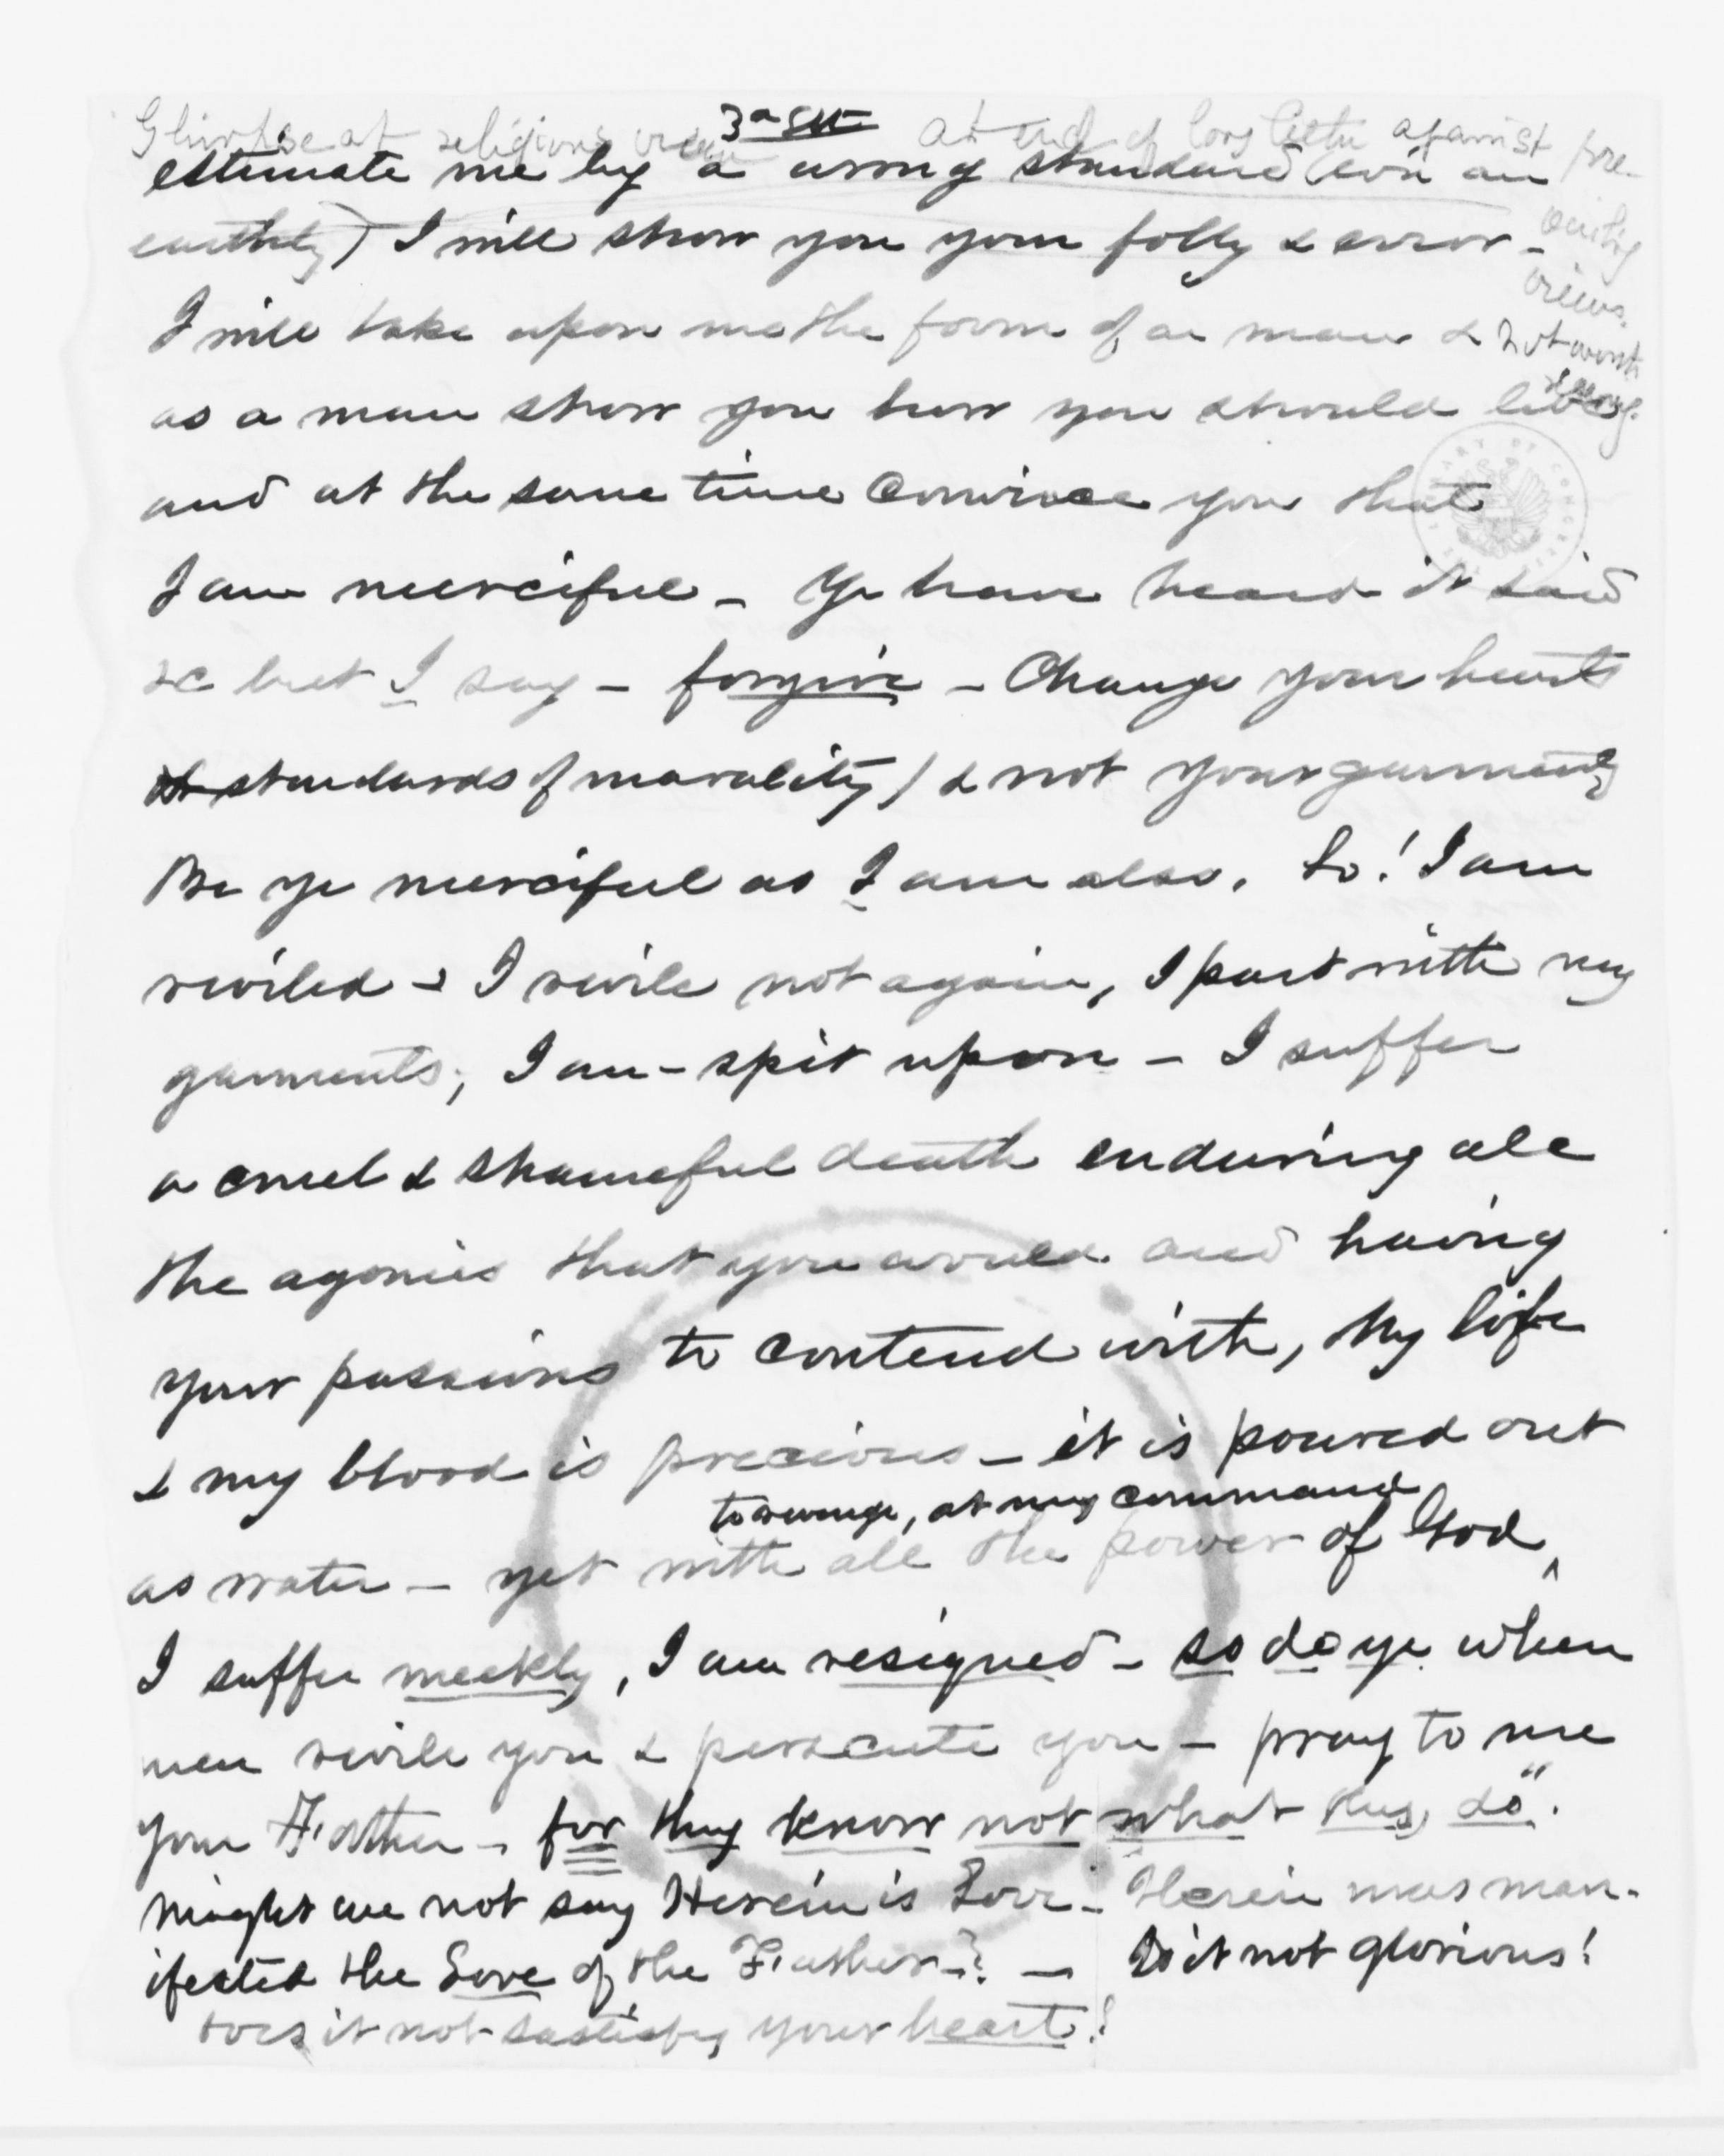 Glimpse at religious views at end of long letter against pre-
vailing
views.
Not worth
3d sh
estimate me by a wrong standard (even an
earthly) I will show you your folly & error -
I will take upon me the form of a man &
as a man show you how you should live
and at the same time convince you that
I am merciful - Ye have heard it said
&c but I say - forgive - Change your hearts
& standards of morality) & not your garments
Be ye merciful as I am also. Lo! I am
reviled & I revile not again, I part with my
garments; I am - spit upon - I suffer
a cruel & shameful death enduring all
the agonies that you would and having
your passions to contend with, My life
& my blood is precious - it is poured out
to avenge, at my command
as water - yet with all the power of God ^
I suffer meekly, I am resigned - so do ye when
men revile you & persecute you - pray to me
your Father - for they know not what they do".
Might we not say Herein is Love - Herein was man-
ifested the Love of the Father -? - Is it not glorious!
does it not satisfy your heart!
LIBRARY OF CONGRESS